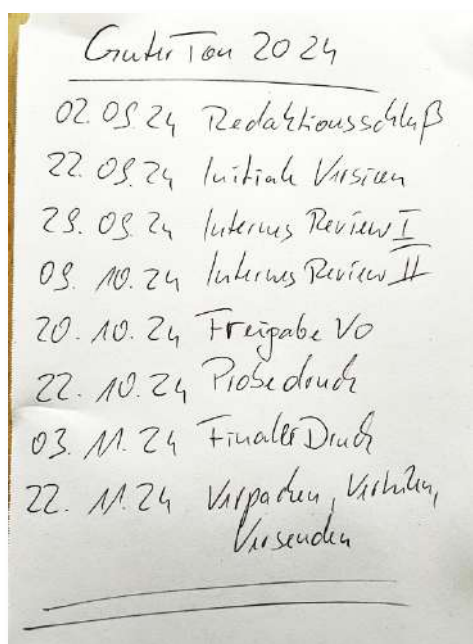 Guter Ton 2024
02.09.24 Redaktionsschluß
22.09.24 Initiale Version
29.09.24 Internes Review I
09.10.24 Internes Review II
20.10.24 Freigabe VO
22.10.24 Probedruck
03.11.24 Finaler Druck
22.11.24 Verpacken, Verteilen,
Versenden